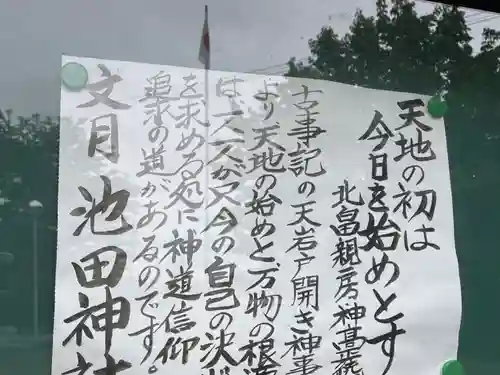 天地の初は
今日を始めとす
北畠親房神
古事記の天岩戸開き神事
より天地の始めと万物の根
は一人一人が只今の自己の決
を求める処に神道信仰
追求の道があるのです。
文月 池田神社